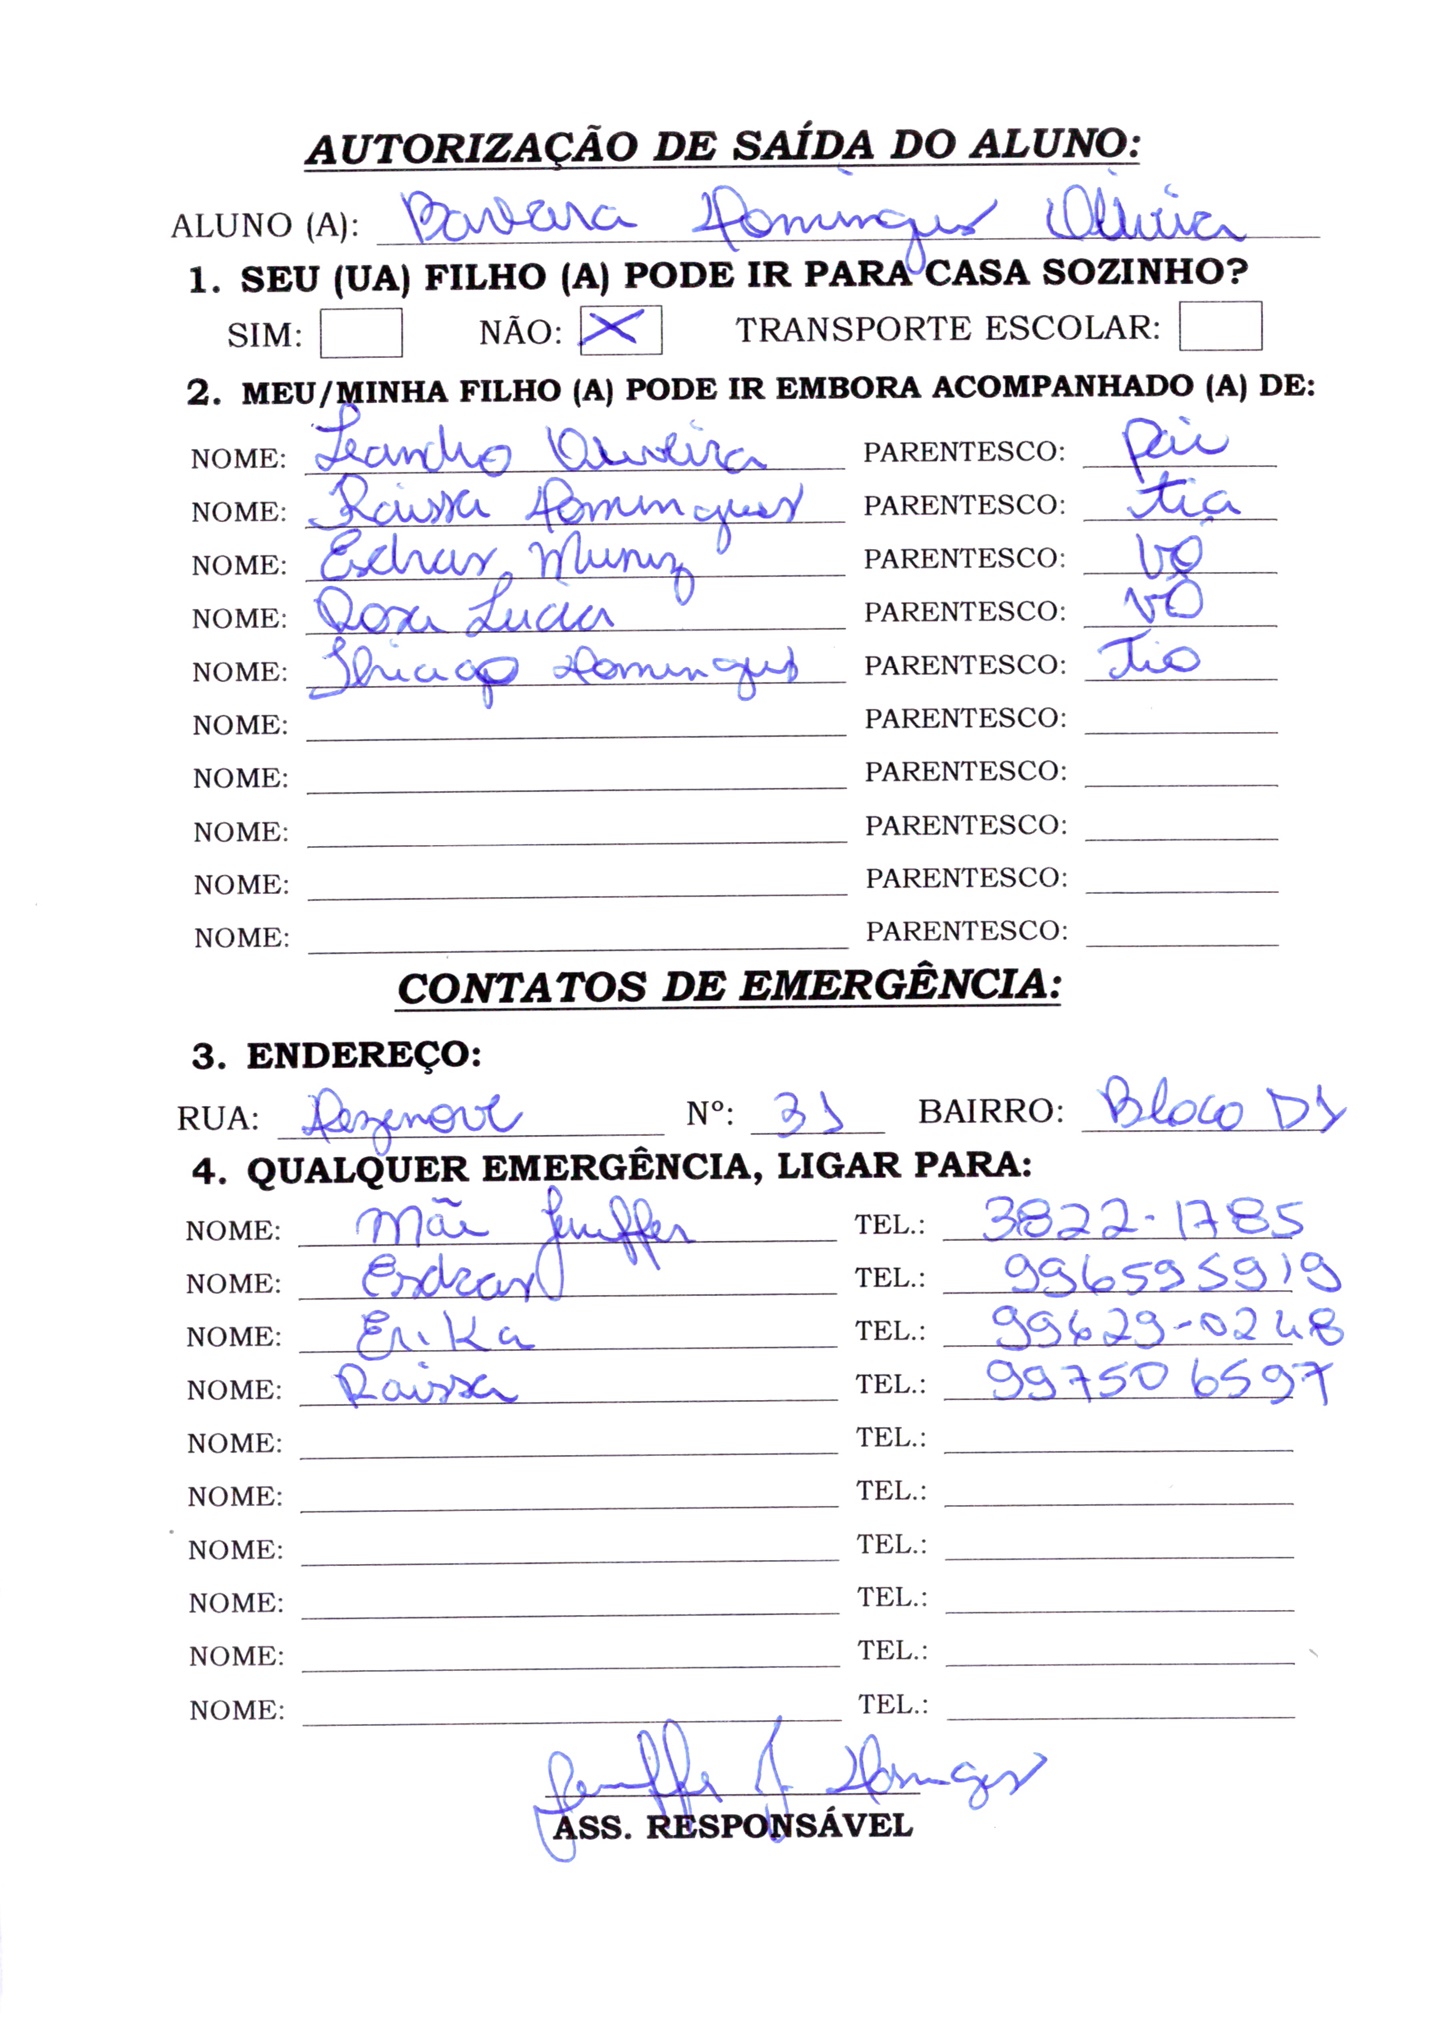 AUTORIZAÇÃO DE SAÍDA DO ALUNO:
ALUNO (A): Barbara Domingues Oliveira
1. SEU (UA) FILHO (A) PODE IR PARA CASA SOZINHO?
SIM: NÃO: X TRANSPORTE ESCOLAR:
2. MEU/MINHA FILHO (A) PODE IR EMBORA ACOMPANHADO (A) DE:
NOME: Leandro Oliveira PARENTESCO: pai
NOME: Raissa Domingues PARENTESCO: tia
NOME: Esdras Muniz PARENTESCO: vô
NOME: Rosa Lucia PARENTESCO: vó
NOME: Thiago Domingues PARENTESCO: Tio
NOME: PARENTESCO:
NOME: PARENTESCO:
NOME: PARENTESCO:
NOME: PARENTESCO:
NOME: PARENTESCO:
CONTATOS DE EMERGÊNCIA:
3. ENDEREÇO:
RUA: Dezenove Nº: 31 BAIRRO: Bloco D1
4. QUALQUER EMERGÊNCIA, LIGAR PARA:
NOME: Mãe Jeniffer TEL.: 3822-1785
NOME: Esdras TEL.: 996595919
NOME: Erika TEL.: 99629-0248
NOME: Raissa TEL.: 99750 6597
NOME: TEL.:
NOME: TEL.:
NOME: TEL.:
NOME: TEL.:
NOME: TEL.:
NOME: TEL.:
Jeniffer J Domingues
ASS. RESPONSÁVEL